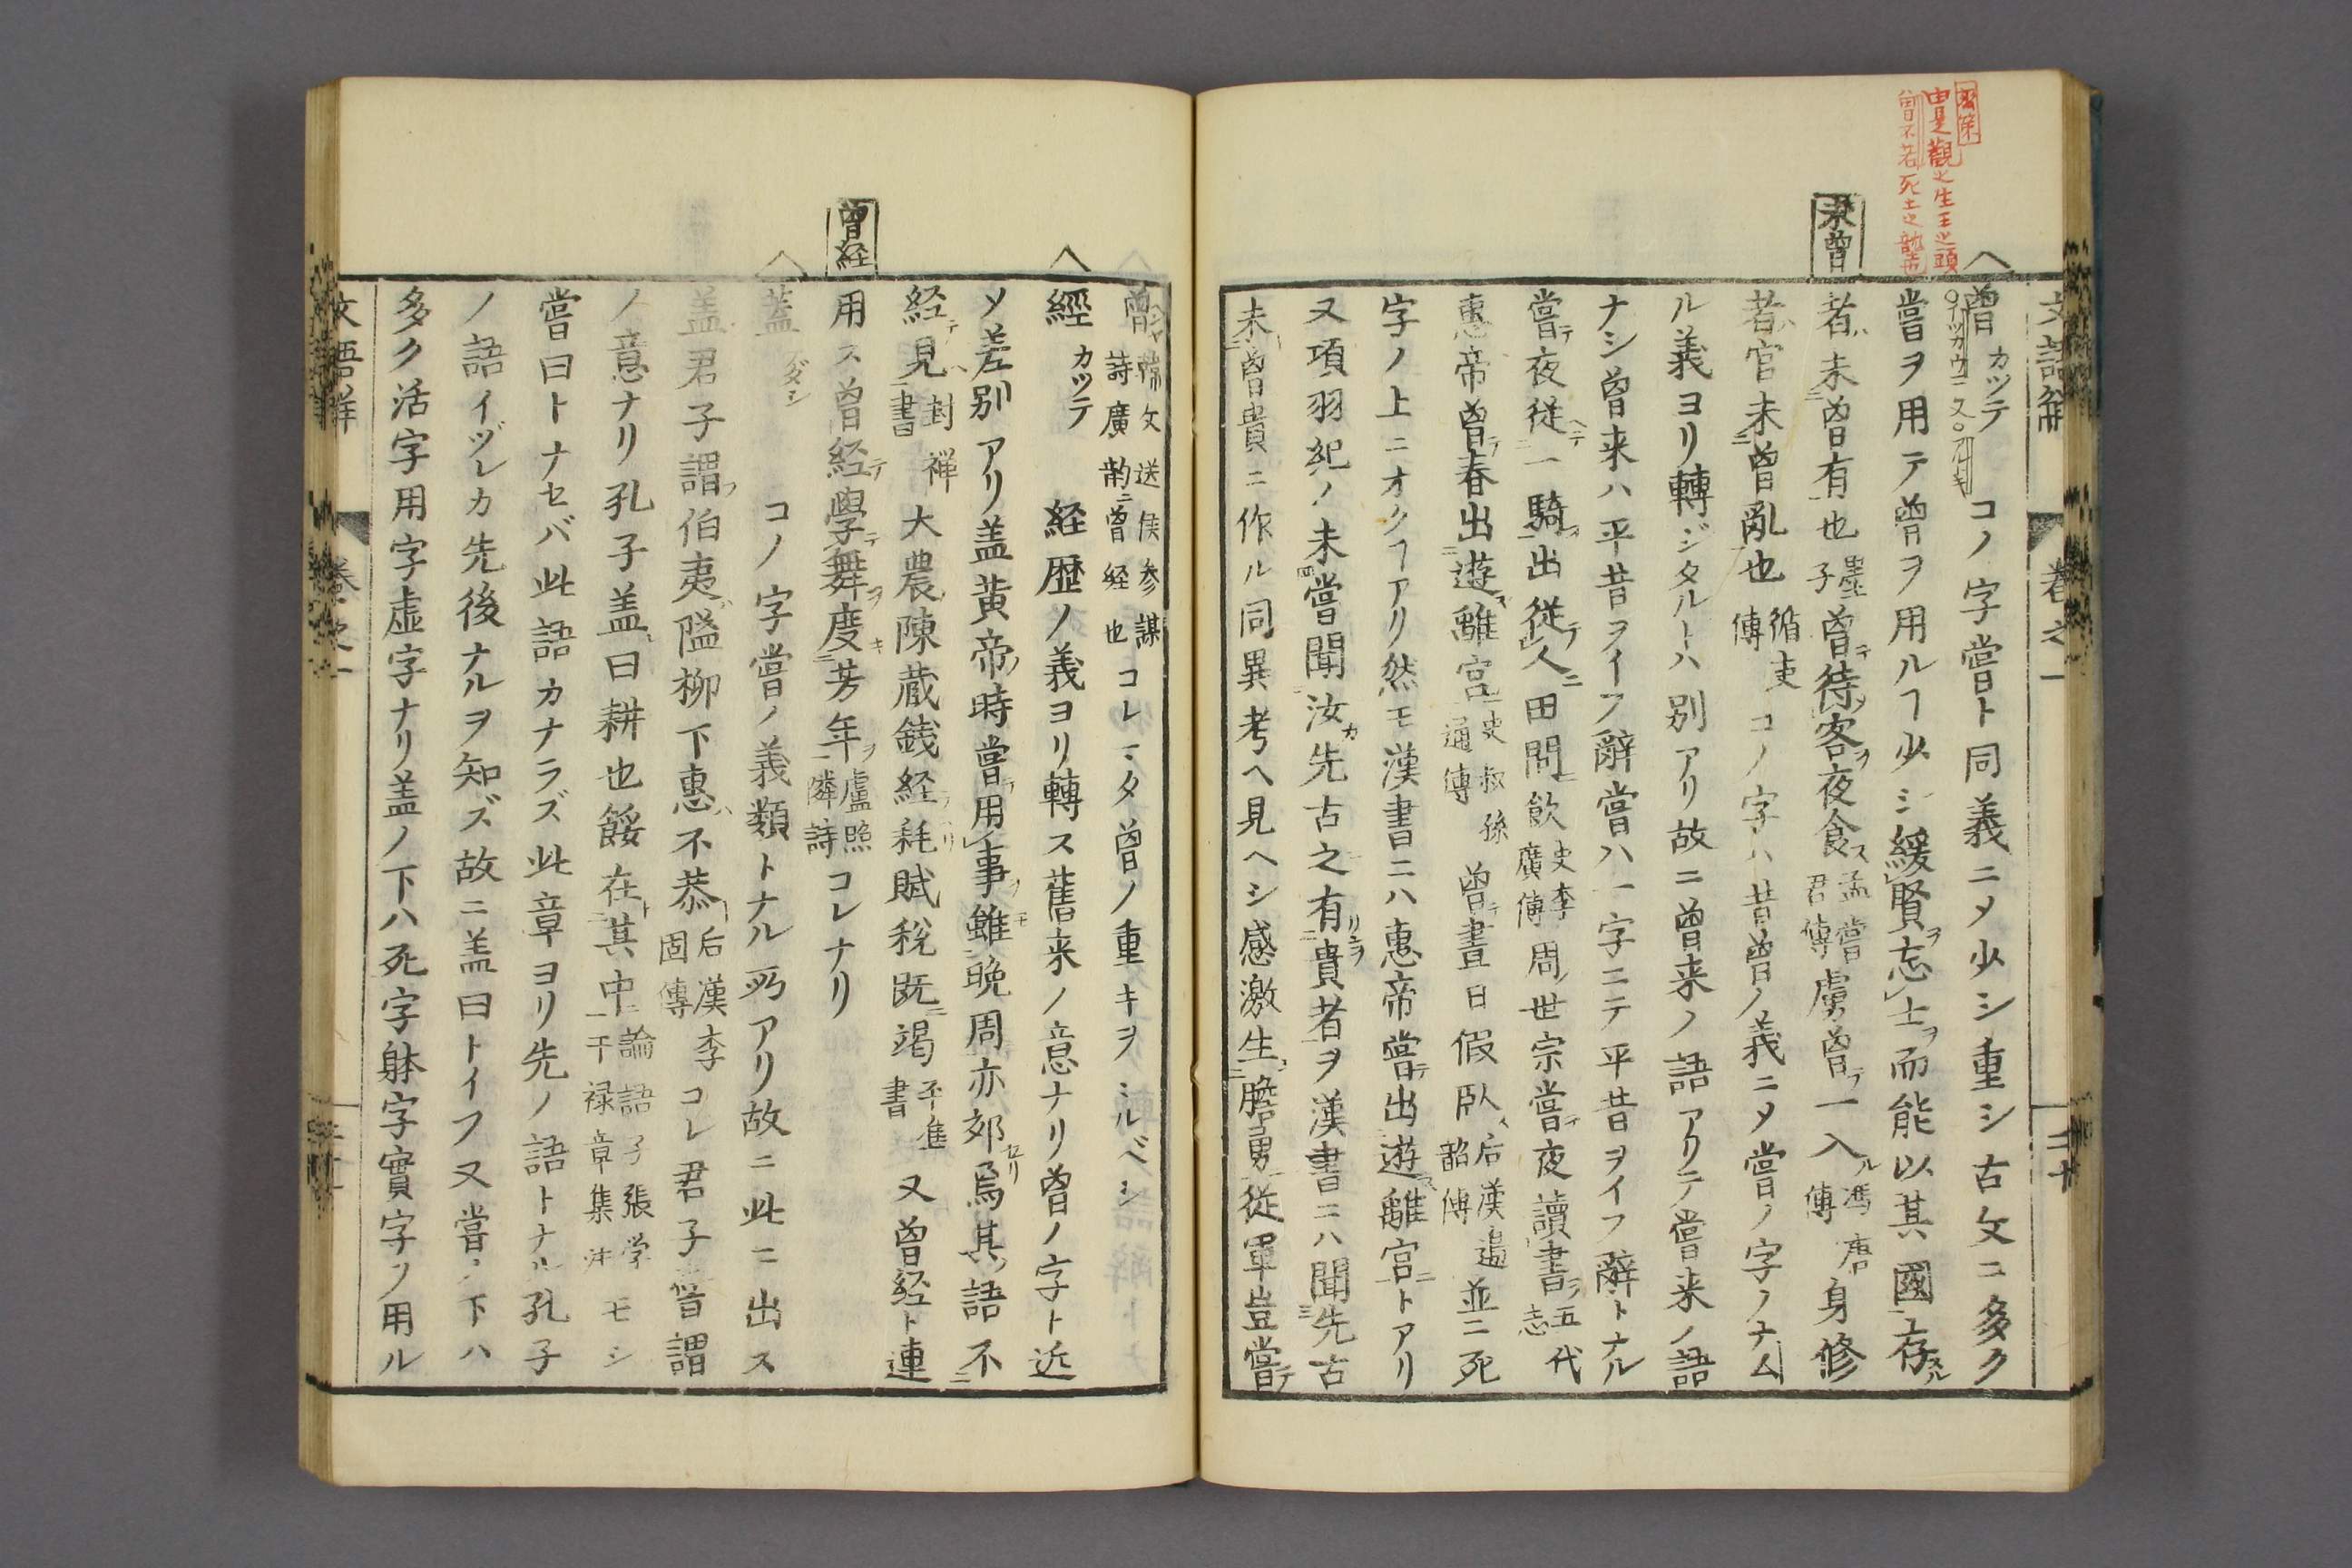 曽カツテ コノ字嘗ト同義ニメ少シ重シ古文ニ多ク
嘗ヲ用テ曽ヲ用ルヿ少シ緩賢忘士而能以其國存
未曽
者未曽有也墨子曽待客夜食孟嘗君傳虜曽一入馮唐傳身修
者官未曽亂也循吏傳コノ字ハ昔曽ノ義ニメ嘗ノ字ノナム
ル義ヨリ轉ジタルトハ別アリ故ニ曽来ノ語アリテ嘗来ノ語
ナシ曽来ハ平昔ヲイフ辭嘗ハ一字ニテ平昔ヲイフ辭トナル
嘗夜従一騎出従人田間飲史李廣傳周世宗嘗夜讀書五代志
惠帝曽春出遊離宮史叔孫通傳曽晝日假臥后漢邉韶傳並ニ死
字ノ上ニオクヿアリ然モ漢書ニハ惠帝嘗出遊離宮トアリ
又項羽紀ノ未嘗聞汝先古之有貴者ヲ漢書ニハ聞先古
未曽貴ニ作ル同異考ヘ見ヘシ感激生膽勇従軍豈嘗
曽韓文送侯参謀詩廣韵ニ曽経也コレニタ曽ノ重キヲミルベシ
經カツテ 経歴ノ義ヨリ轉ス舊来ノ意ナリ曽ノ字ト近
ソ差別アリ盖黄帝時嘗用事雖晩周亦郊焉其語不
経見封禅書大農陳蔵銭経耗賦税既竭平準書又曽経ト連
曽経
用ス曽経學舞度芳年盧照隣詩コレナリ
蓋ケダシ コノ字嘗ノ義類トナル所アリ故ニ此ニ出ス
盖君子謂伯夷隘柳下惠不恭后漢李固傳コレ君子嘗謂
ノ意ナリ孔子盖曰耕也餒在其中論語子張学干禄章集注モシ
嘗曰トナセバ此語カナラズ此章ヨリ先ノ語トナル孔子
ノ語イヅレカ先後ナルヲ知ズ故ニ盖曰トイフ又嘗ノ下ハ
多ク活字用字虚字ナリ盖ノ下ハ死字躰字實字ノ用ル